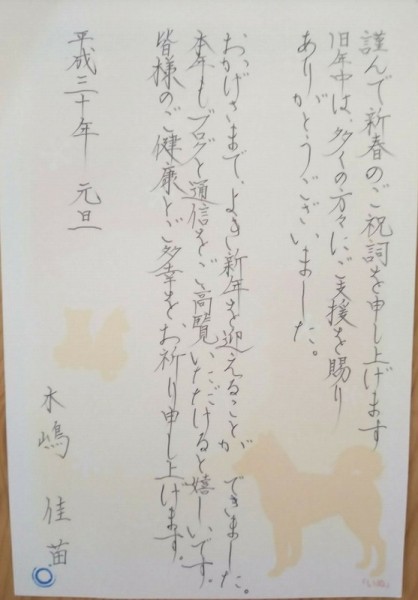 謹んで新春のご祝詞を申し上げます
旧年中は、多くの方々にご支援を賜り
ありがとうございました。
おかげさまで、よき新年を迎えることができました。
本年もブログと通信をご高覧いただけると嬉しいです。
皆様のご健康とご多幸を、お祈り申し上げます。
平成三十年 元旦
木嶋 佳苗